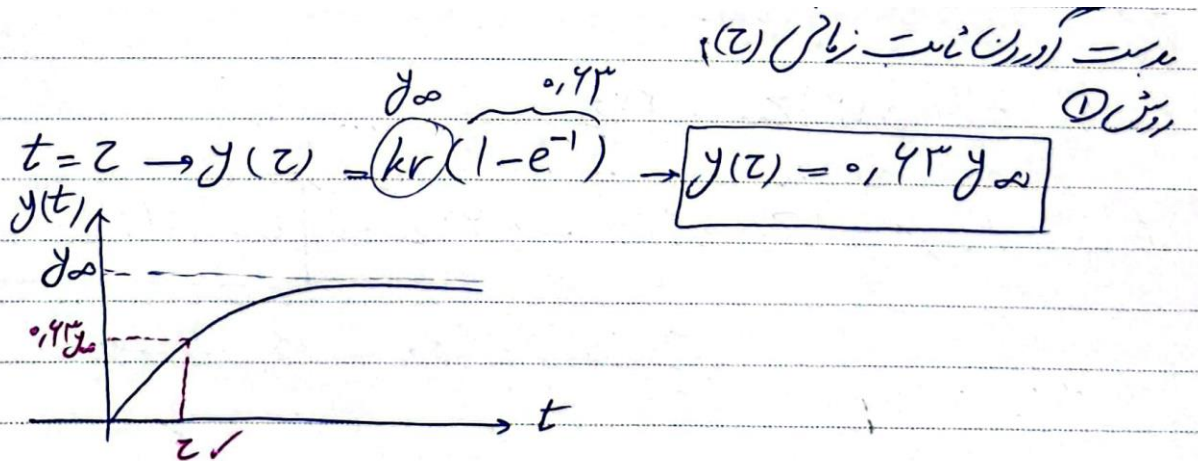 بدست آوردن ثابت زمانی (τ):
روش ①
y∞ ۰,۶۳
t = τ → y(τ) = kr(1 - e⁻¹) → y(τ) = ۰,۶۳ y∞
y(t)
y∞
۰,۶۳y∞
t
τ ✓